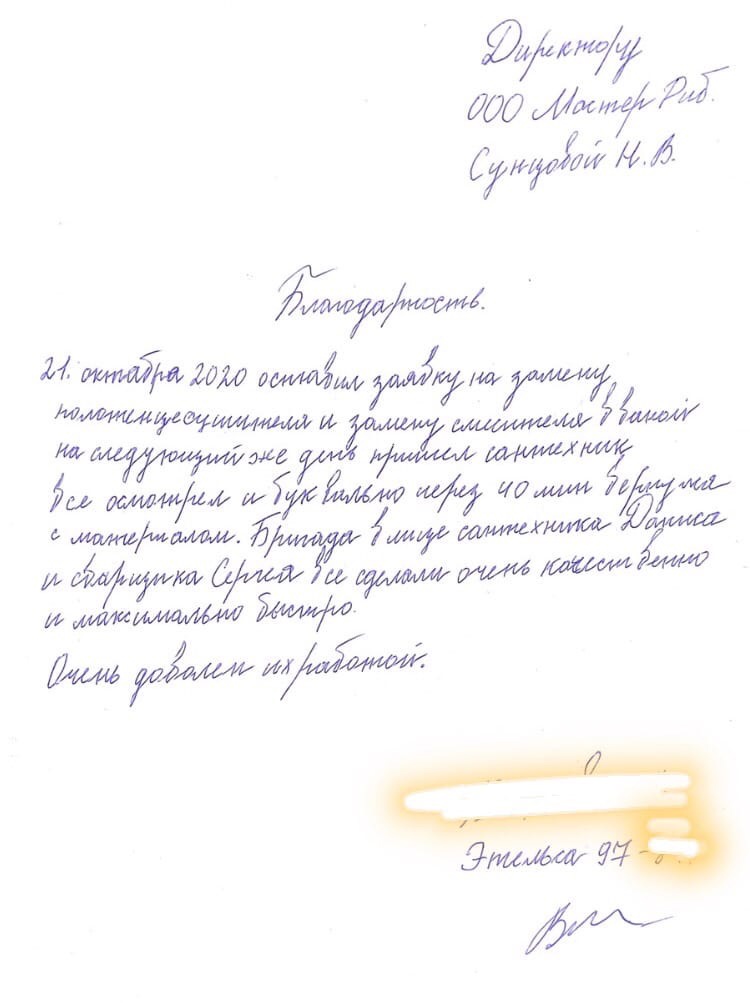 Директору
ООО Мастер Риб.
Сунцовой Н.В.
Благодарность.
21. октября 2020 оставил заявку на замену
полотенцесушителя и замену смесителя в ваной
на следующий же день пришел сантехник,
все осмотрел и буквально через 40 мин вернулся
с материалом. Бригада в лице сантехника Даниса
и сварщика Сергея все сделали очень качественно
и максимально быстро.
Очень доволен их работой.
Этелька 97-